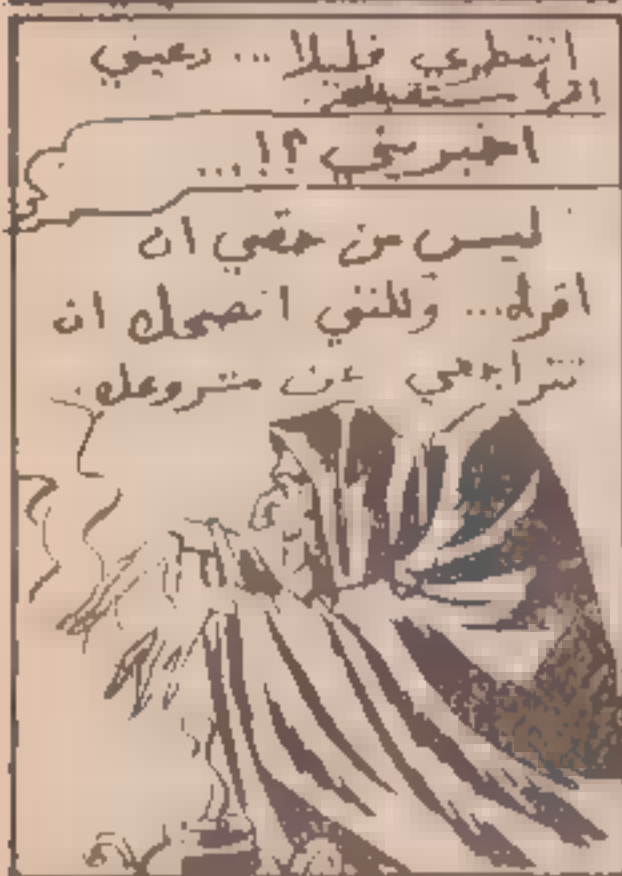 انتظري قليلا... دعيني
اقرأ مستقبلك
اخبريني ؟!...
ليس من حقي ان
اقوله... ولكنني انصحك ان
تتراجعي عن مشروعك.